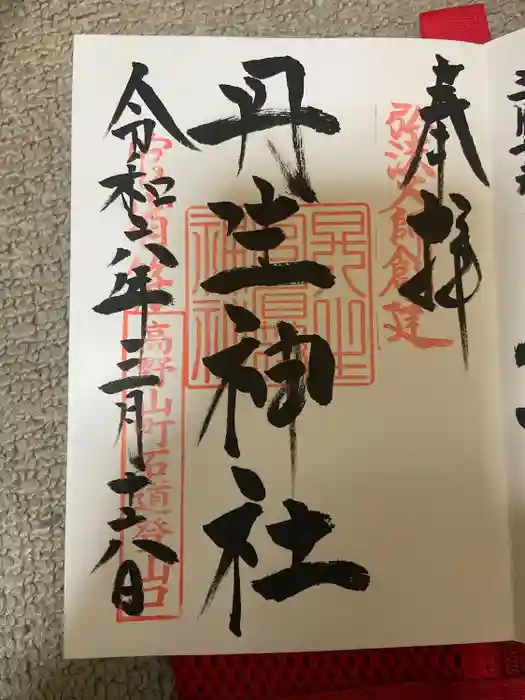 奉拝
弘法大師創建
丹生神社
令和六年三月十六日
高野山町石道登山口